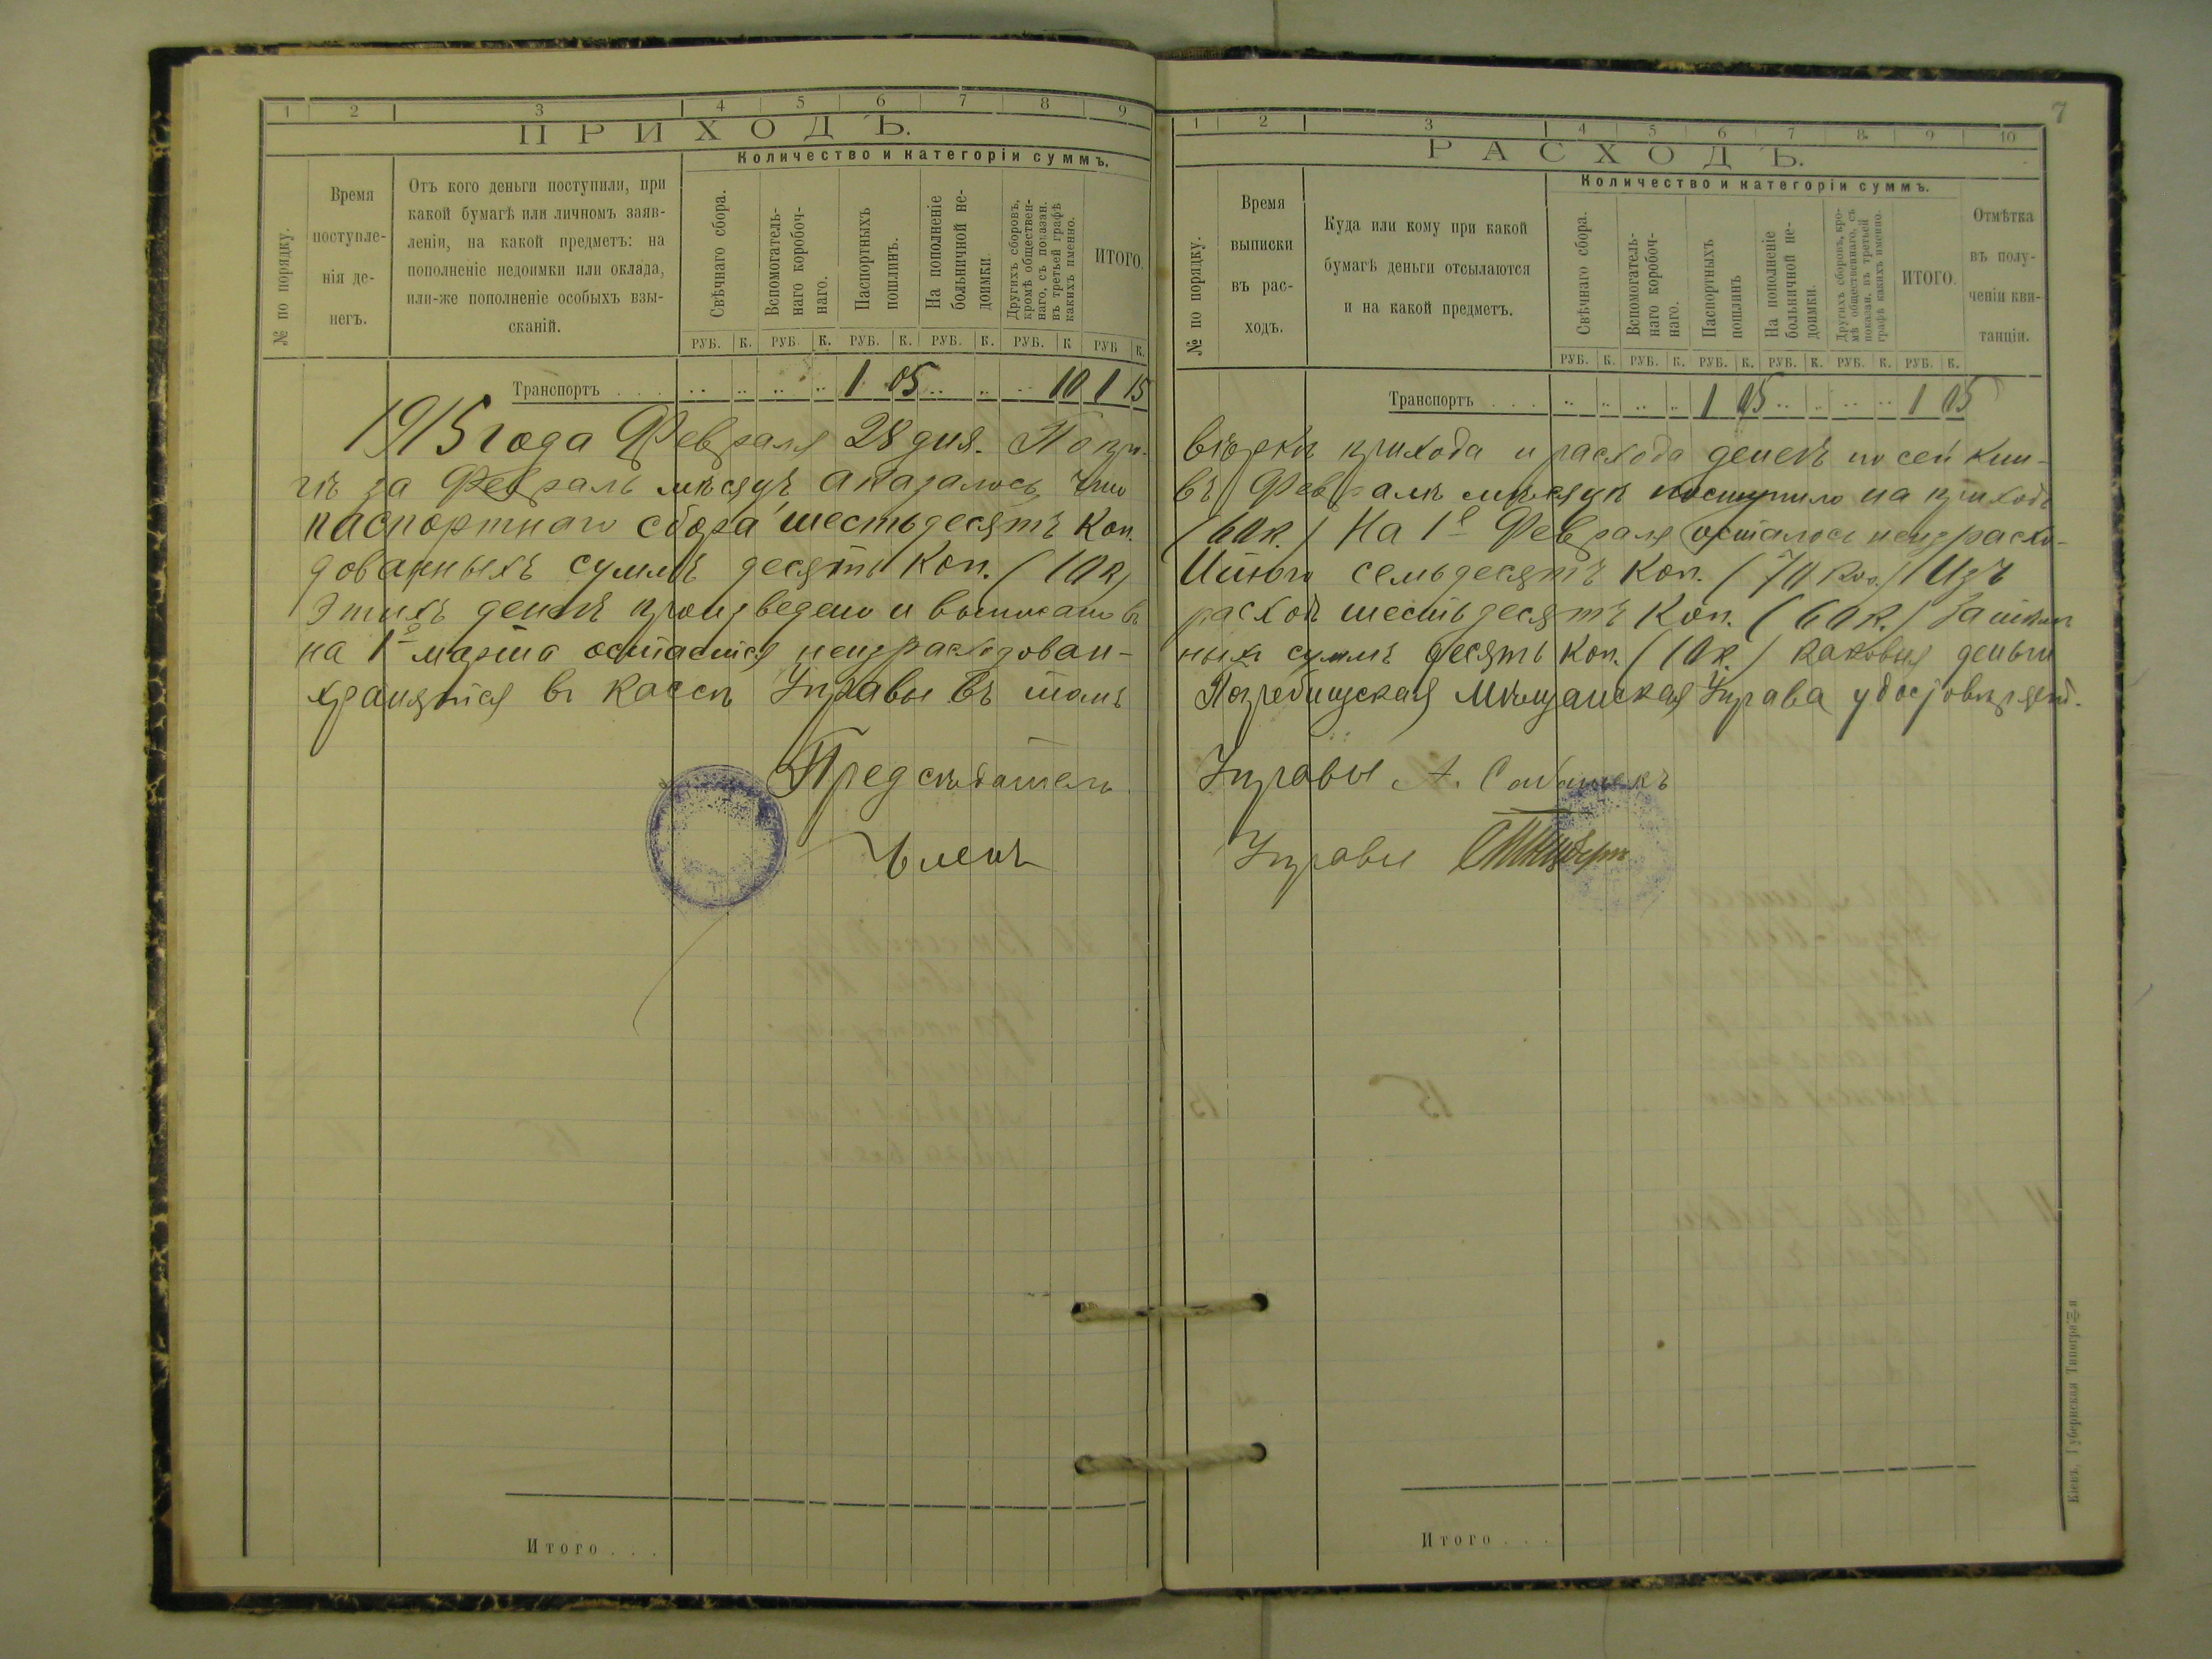 1 2 3 4 5 6 7 8 9
ПРИХОДЪ.
№ по порядку.
Время поступле-
нія де-
негъ.
Отъ кого деньги поступили, при
какой бумагѣ или личномъ заяв-
леніи, на какой предметъ: на
пополненіе недоимки или оклада,
или-же пополненіе особыхъ взы-
сканій.
Количество и категоріи суммъ.
Свѣчнаго сбора.
Вспомогатель-
наго коробоч-
наго.
Паспортныхъ
пошлинъ.
На пополненіе
больничной не-
доимки.
Другихъ сборовъ,
кромѣ обществен-
наго, съ показан.
въ третьей графѣ
какихъ именно.
ИТОГО.
РУБ. К. РУБ. К. РУБ. К. РУБ. К. РУБ. К РУБ К.
Транспортъ . . . 1 05 10 1 15
1915 года Февраля 28 дня. По пр.
гѣ за Февраль мѣсяцъ аказалось, что
паспортнаго сбора шестьдесятъ коп.
дованныхъ суммъ десять коп. (10 к)
Этихъ денегъ произведено и выписано въ
на 1е марта остается неизрасходован-
хранятся въ кассѣ Управы въ томъ
Предсѣдатель
Членъ
Итого . . .
7
1 2 3 4 5 6 7 8 9 10
РАСХОДЪ.
№ по порядку.
Время
выписки
въ рас-
ходъ.
Куда или кому при какой
бумагѣ деньги отсылаются
и на какой предметъ.
Количество и категоріи суммъ.
Свѣчнаго сбора.
Вспомогатель-
наго коробоч-
наго.
Паспортныхъ
пошлинъ
На пополненіе
больничной не-
доимки.
Другихъ сборовъ, кро-
мѣ общественнаго, съ
показан. въ третьей
графѣ какихъ именно.
ИТОГО.
Отмѣтка
въ полу-
ченіи кви-
танціи.
РУБ. К. РУБ. К. РУБ. К. РУБ. К. РУБ. К. РУБ. К.
Транспортъ . . . 1 05 1 05
вѣрки прихода и расхода денегъ по сей кни-
въ Февралѣ мѣсяцѣ поступило на приходъ
(60 к.) На 1е Февраля осталось неизрасхо-
Итого семьдесятъ коп. (70 коп.) Изъ
расходъ шестьдесятъ коп. (60 к.) Затѣмъ
ныхъ суммъ десять коп. (10 к.) каковыя деньги
Погребищская Мѣщанская Управа удостовѣряетъ.
Управы А.
Управы
Итого . . .
Кіевъ, Губернская